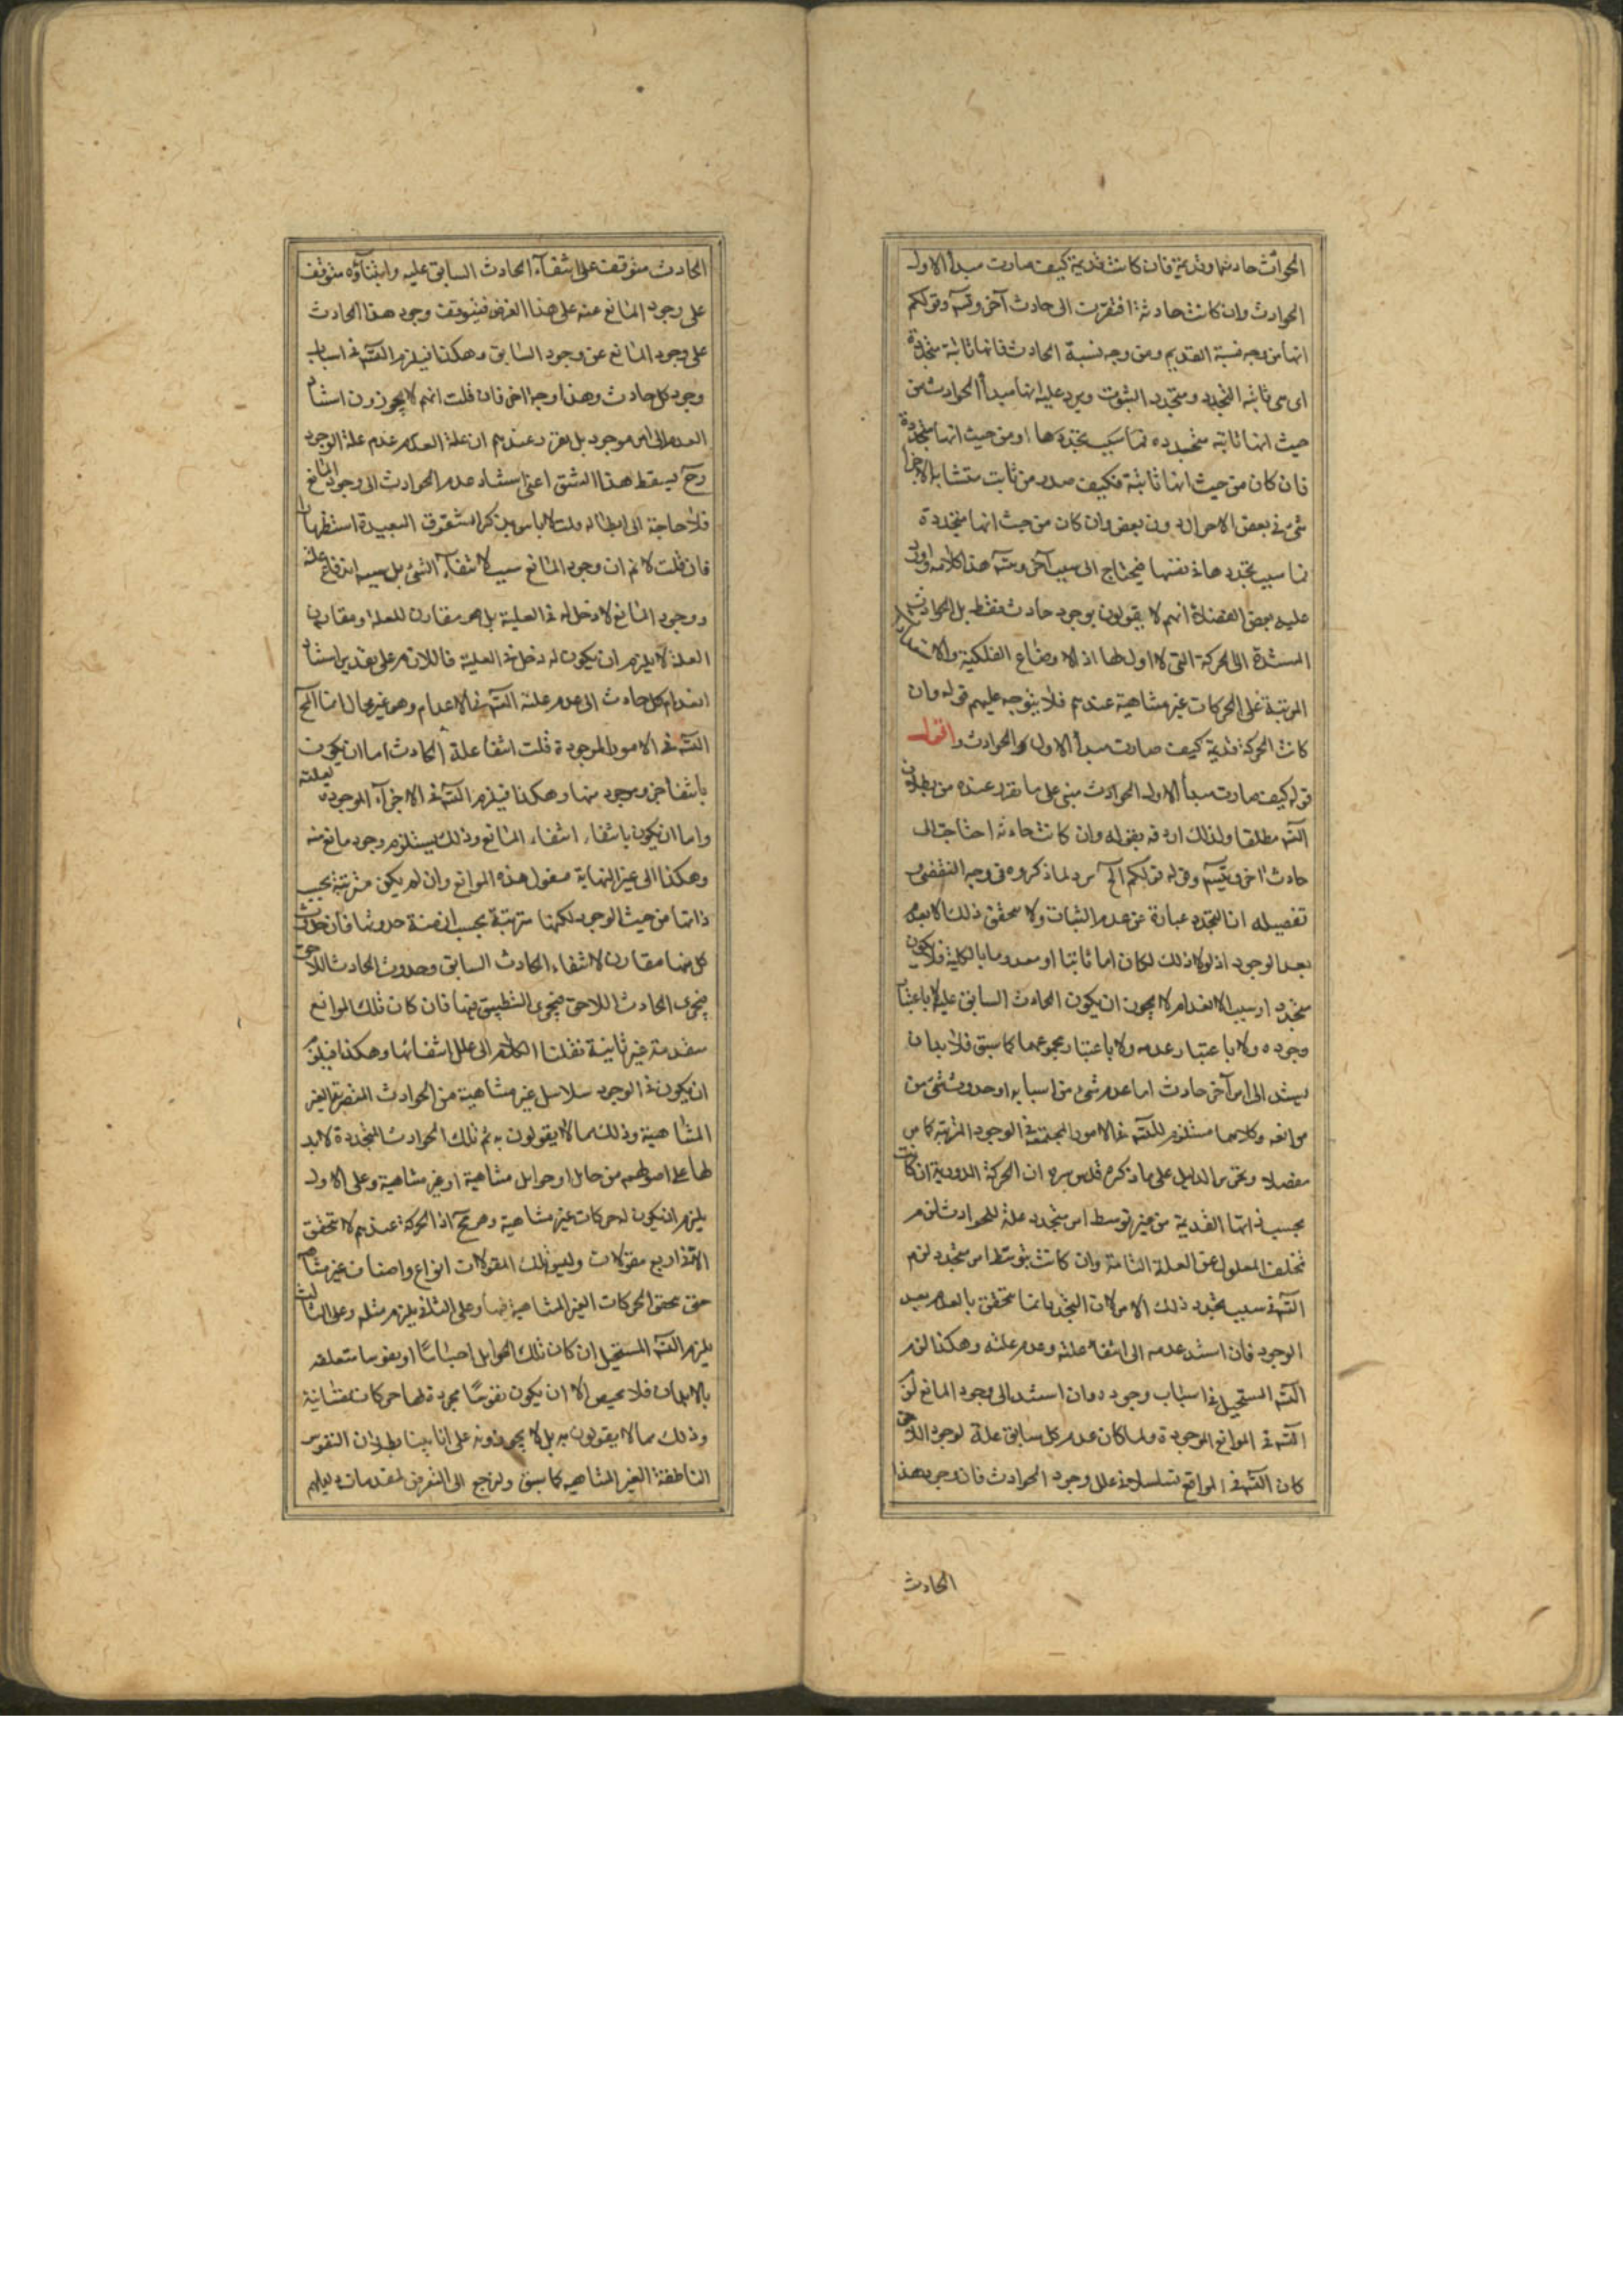 الحوادث حادثة او قديمة فان كانت قديمة كيف صارت مبدأ الاول
الحوادث وان كانت حادثة افتقرت الى حادث آخر وتسه وقولكم
انها من وجه نسبة القديم ومن وجه نسبة الحادث فانها ثابتة متجددة
اى هى ثابتة التجدد ومتجدد الثبوت ويرد عليه انها مبدأ الحوادث من
حيث انها ثابته متجدده فما سبب تجددها او من حيث انها متجددة
فان كان من حيث انها ثابتة فكيف صدر من ثابت متشابه الاجزا
شئ فى بعض الاحوال دون بعض وان كان من حيث انها متجددة
فما سبب تجددها فى نفسها فيحتاج الى سبب آخر وتسه هذا كلامه واورد
عليه بعض الفضلاء انهم لا يقولون بوجود حادث فقط بل الحوادث
المستندة الى الحركة التى لا اول لها اذ الاوضاع الفلكية والاستعدادات
المرتبة على الحركات غير متناهية عندهم فلا يتوجه عليهم قوله وان
كانت الحركة قديمة كيف صارت مبدأ الاول الحوادث واقول
قوله كيف صارت مبدأ الاول الحوادث مبنى على ما تقرر عنده من بطلان
التسه مطلقا ولذلك اردفه بقوله وان كانت حادثه احتاجت الى
حادث اخر وتتسه وقوله قولكم الخ رد لما ذكروه فى وجه التفصى
تفصيله ان التجدد عبارة عن عدم الثبات ولا يتحقق ذلك الا بعدم
بعد الوجود اذ لولا ذلك لكان اما ثابتا او معدوما بالكلية فلا يكون
متجددا وسبب الانعدام لا يجوز ان يكون الحادث السابق عليه لا باعتبار
وجوده ولا باعتبار عدمه ولا باعتبار مجموعهما كما سبق فلا بد ان
يستند الى امر آخر حادث اما عدم شئ من اسبابه او حدوث شئ من
موانعه وكلاهما مستلزم للتسه فى الامور المجتمعة فى الوجود المرتبة كما مر
مفصلا ونحرر الدليل على ما ذكره قدس سره ان الحركة الدورية ان كانت
بحسب ذاتها القديمة من غير توسط امر متجدد علة للحوادث لزم
تخلف المعلول عن العلة التامة وان كانت بتوسط امر متجدد لزم
التسه فى سبب تجدد ذلك الامر لان التجدد انما يتحقق بالعدم بعد
الوجود فان استند عدمه الى انتفاء علته وعدم علته وهكذا لزم
التسه المستحيل فى اسباب وجوده وان استند الى وجود المانع لزم
التسه فى الموانع الموجودة ولما كان عدم كل سابق علة لوجود اللاحق
كان التسه فى الموانع تسلسلا فى علل وجود الحوادث فان وجود هذا
الحادث
الحادث متوقف على انتفآء الحادث السابق عليه وانتفآؤه متوقف
على وجود المانع عنه على هذا الفرض فيتوقف وجود هذا الحادث
على وجود المانع عن وجود السابق وهكذا فيلزم التسه فى اسباب
وجود كل حادث وهذا وجه اخر فان قلت انهم لا يجوزون استناد
العدم الى امر موجود بل تقرر عندهم ان علة العدم عدم علة الوجود
وح يسقط هذا الشق اعنى استناد عدم الحوادث الى وجود المانع
فلا حاجة الى ابطاله قلت لا باس بذكر الشقوق البعيدة استظهارا
فان قلت لا نم ان وجود المانع سبب لانتفآء الشئ بل سببه انتفاء علته
ووجود المانع لا دخل له فى العلية بل هو مقارن للعلة ومقارن
العلة لا يلزم ان يكون له دخل فى العلية فاللازم على تقدير استناد
انعدام كل حادث الى عدم علته التسه فى الاعدام وهو غير محال انما المح
التسه فى الامور الموجودة قلت انتفا علة الحادث اما ان يكون
بانتفا جزء موجود منها وهكذا فيلزم التسه فى الاجزآء الموجوده لعلته
واما ان يكون بانتفاء انتفاء المانع وذلك يستلزم وجود مانع منه
وهكذا الى غير النهاية فنقول هذه الموانع وان لم يكن مترتبة بحسب
ذاتها من حيث الوجود لكنها مترتبة بحسب ازمنة حدوثها فان حدوث
كل منها مقارن لانتفاء الحادث السابق وحدوث الحادث اللاحق
فيجرى التطبيق فيها فان كان تلك الموانع
متقدمة غير ثابتة نقلنا الكلام الى علل انتفائها وهكذا فيلزم
ان يكون فى الوجود سلاسل غير متناهية من الحوادث المتصرمة الغير
المتناهية وذلك مما لا يقولون به ثم تلك الحوادث المتجددة لا بد
لها على اصولهم من حامل او حوامل متناهية او غير متناهية وعلى الاول
يلزم ان يكون له حركات غير متناهية وهو مح اذ الحركة عندهم لا تتحقق
الا فى اربع مقولات وليس لتلك المقولات انواع واصناف غير متناهية
حتى يتحقق الحركات الغير المتناهية فيها وعلى الثانى يلزم مثله وعلى الثالث
يلزم التسه المستحيل ان كان تلك الحوامل اجسامًا او نفوسا متعلقه
بالابدان فلا محيص الا ان يكون نفوسًا مجردة لها حركات نفسانية
وذلك مما لا يقولون به بل لا يجوزونه على انا بينا بطلان النفوس
الناطقة الغير المتناهيه كما سبق ولنرجع الى التعرض لمقدمات دليلهم